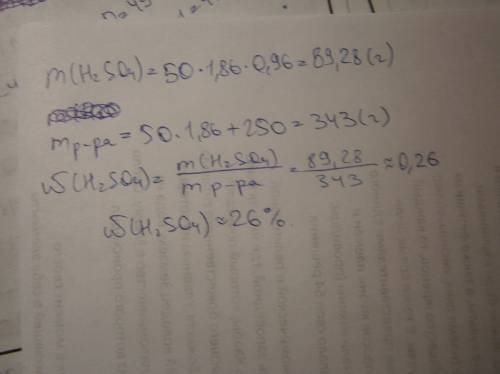 m(H₂SO₄) = 50 · 1,86 · 0,96 = 89,28 (г)
mр-ра = 50 · 1,86 + 250 = 343 (г)
ω(H₂SO₄) = m(H₂SO₄) / m р-ра = 89,28 / 343 ≈ 0,26
ω(H₂SO₄) ≈ 26%.